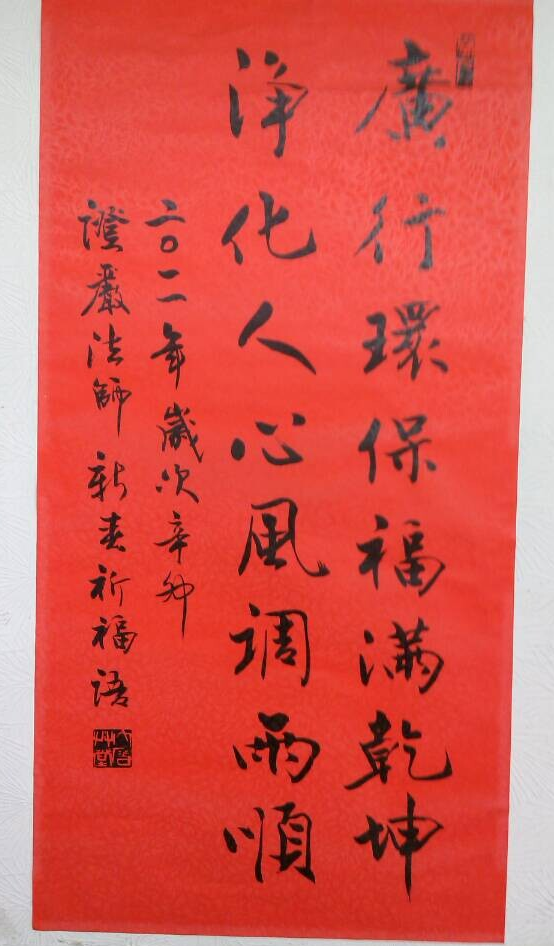 廣行環保福滿乾坤
淨化人心風調雨順
二〇一一年歲次辛卯
證嚴法師新春祈福語